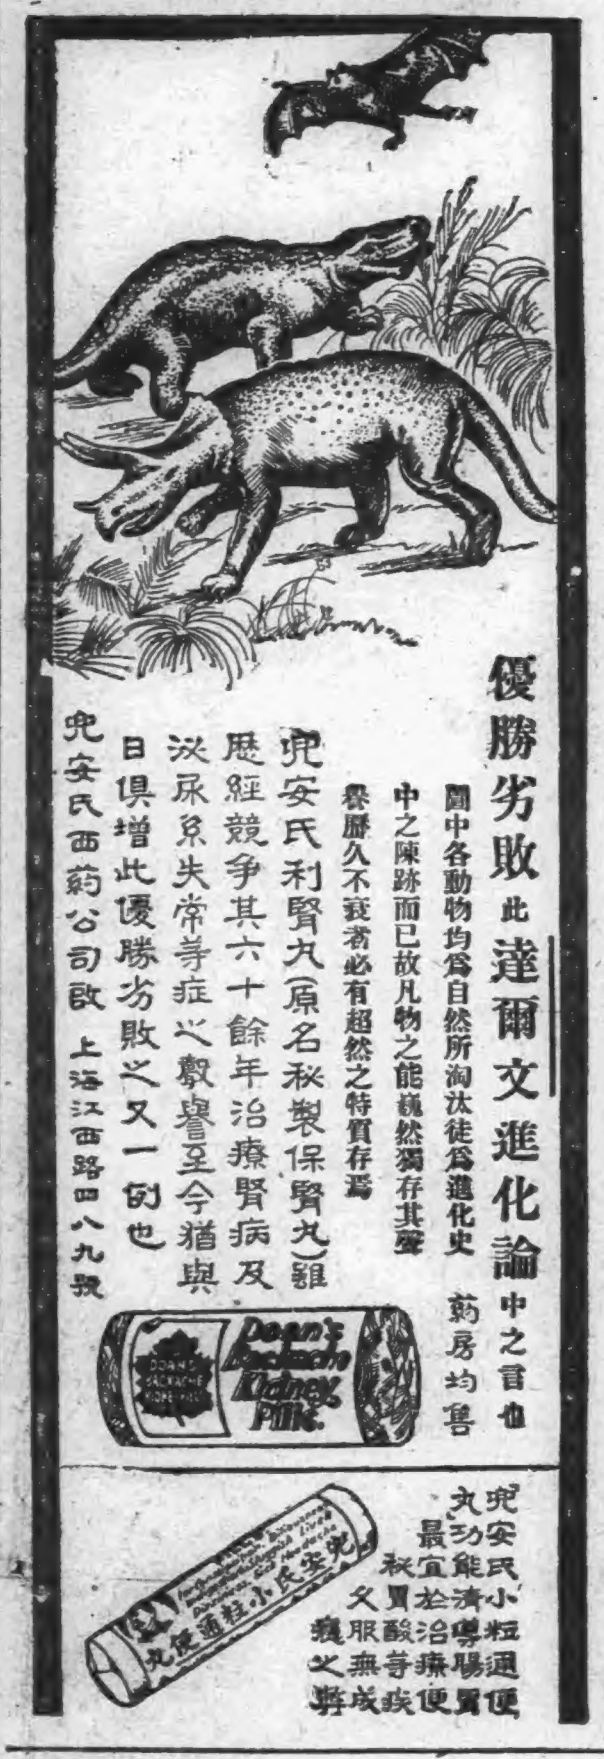 優勝劣敗此達爾文進化論中之言也
圖中各動物均爲自然所淘汰徒爲進化史
中之陳跡而已故凡物之能巍然獨存其聲
譽歷久不衰者必有超然之特質存焉
兜安氏利腎丸(原名秘製保腎丸)雖
歷經競争其六十餘年治療腎病及
泌尿系失常等症之聲譽至今猶與
日俱增此優勝劣敗之又一例也
兜安氏西药公司啟 上海江西路四八九號
药房均售
DOAN'S
BACKACHE
KIDNEY PILLS
Doan's
Backache
Kidney
Pills.
兜安氏小粒通便
丸功能濟導腸胃
最宜於治療便
秘胃酸等疾
久服無成
癮之弊
兜安氏小粒通便丸